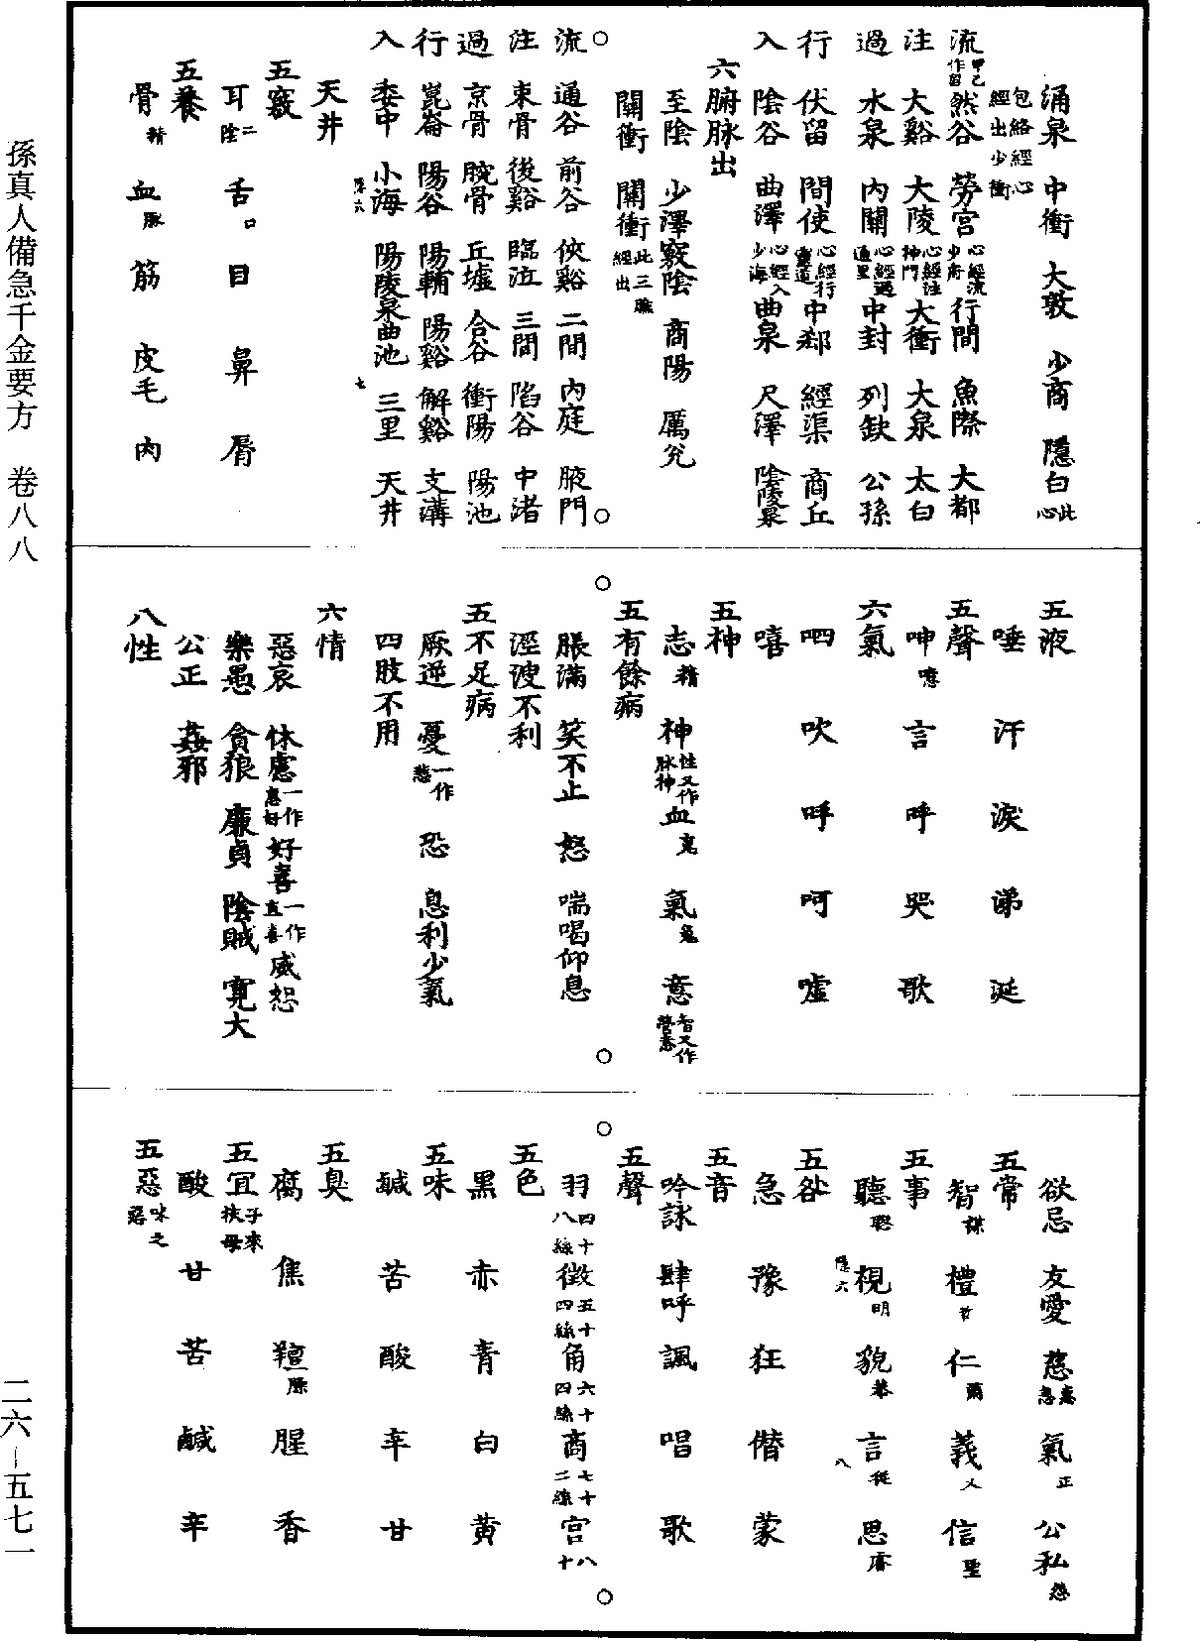 孫真人備急千金要方 卷八八
二六-五七一
涌泉 中衝 大敦 少商 隱白此心
包絡經心經出少衝
流甲己作留然谷 勞宮心經流少府行間 魚際 大都
注 大谿 大陵心經注神門大衝 大泉 太白
過 水泉 內關心經過通里中封 列缺 公孫
行 伏留 間使心經行靈道中郄 經渠 商丘
入 陰谷 曲澤心經入少海曲泉 尺澤 陰陵泉
六腑脉出
至陰 少澤竅陰 商陽 厲兌
關衝 關衝此三膲經出
○
流 通谷 前谷 俠谿 二間 內庭 腋門
注 束骨 後谿 臨泣 三間 陷谷 中渚
過 京骨 腕骨 丘墟 合谷 衝陽 陽池
行 崑崙 陽谷 陽輔 陽谿 解谿 支溝
入 委中 小海 陽陵泉曲池 三里 天井
天井
隱六 七
五竅
耳二陰 舌口 目 鼻 脣
五養
骨精 血脉 筋 皮毛 肉
○
五液
唾 汗 淚 涕 涎
五聲
呻噫 言 呼 哭 歌
六氣
呬 吹 呼 呵 噓
嘻
五神
志精 神性又作脉神血䰟 氣魄 意智又作營意
五有餘病
○
脹滿 笑不止 怒 喘喝仰息
涇溲不利
五不足病
厥逆 憂一作悲 恐 息利少氣
四肢不用
六情
惡哀 怵慮一作惠好好喜一作直喜威恕
樂愚 貪狼 廉貞 陰賊 寬大
公正 姦邪
八性
○
欲忌 友愛 慈惠悲 氣正 公私怨
五常
智謀 禮哲 仁肅 義乂 信聖
五事
聽聰 視明 貌恭 言從 思睿
隱六 八
五咎
急 豫 狂 僭 蒙
五音
吟詠 肆呼 諷 唱 歌
五聲
○
羽四十八絲徵五十四絲角六十四絲商七十二絲宮八十
五色
黑 赤 青 白 黄
五味
鹹 苦 酸 辛 甘
五臭
腐 焦 羶一臊 腥 香
五宜子來扶母
酸 甘 苦 鹹 辛
五惡味之惡
○